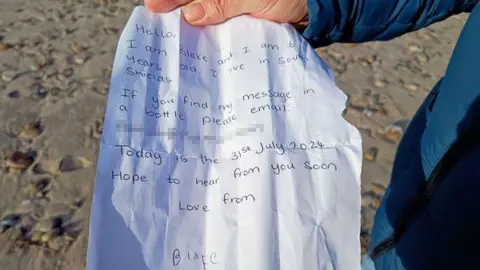 Hello,
I am Blake and I am 6
years old I live in South
Shields
If you find my message in
a bottle please email:
Today is the 31st July 2024
Hope to hear from you soon
Love from
Blake